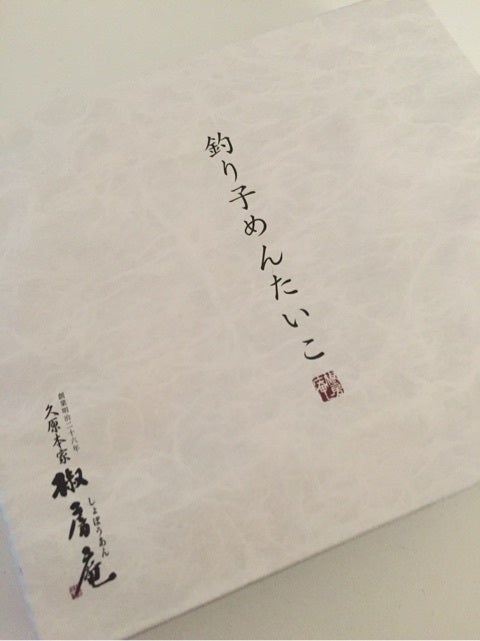 釣り子めんたいこ
創業明治二十六年
久原本家
椒房庵
しょぼうあん